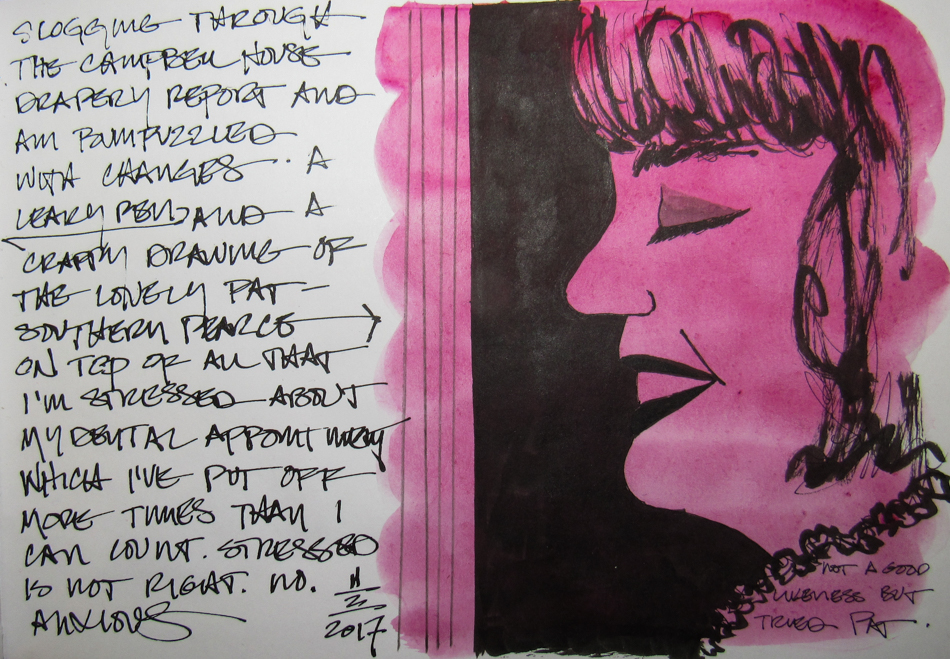 SLOGGING THROUGH
THE CAMPBELL HOUSE
DRAPERY REPORT AND
AM BUMFUZZLED
WITH CHANGES. A
LEAKY PEN AND A
CRAPPY DRAWING OF
THE LOVELY PAT
SOUTHERN PEARCE
ON TOP OF ALL THAT
I'M STRESSED ABOUT
MY DENTAL APPOINTMENT
WHICH I'VE PUT OFF
MORE TIMES THAN I
CAN COUNT. STRESSED
IS NOT RIGHT. NO.
ANXIOUS
2017
NOT A GOOD
LIKENESS BUT
TRIED PAT.